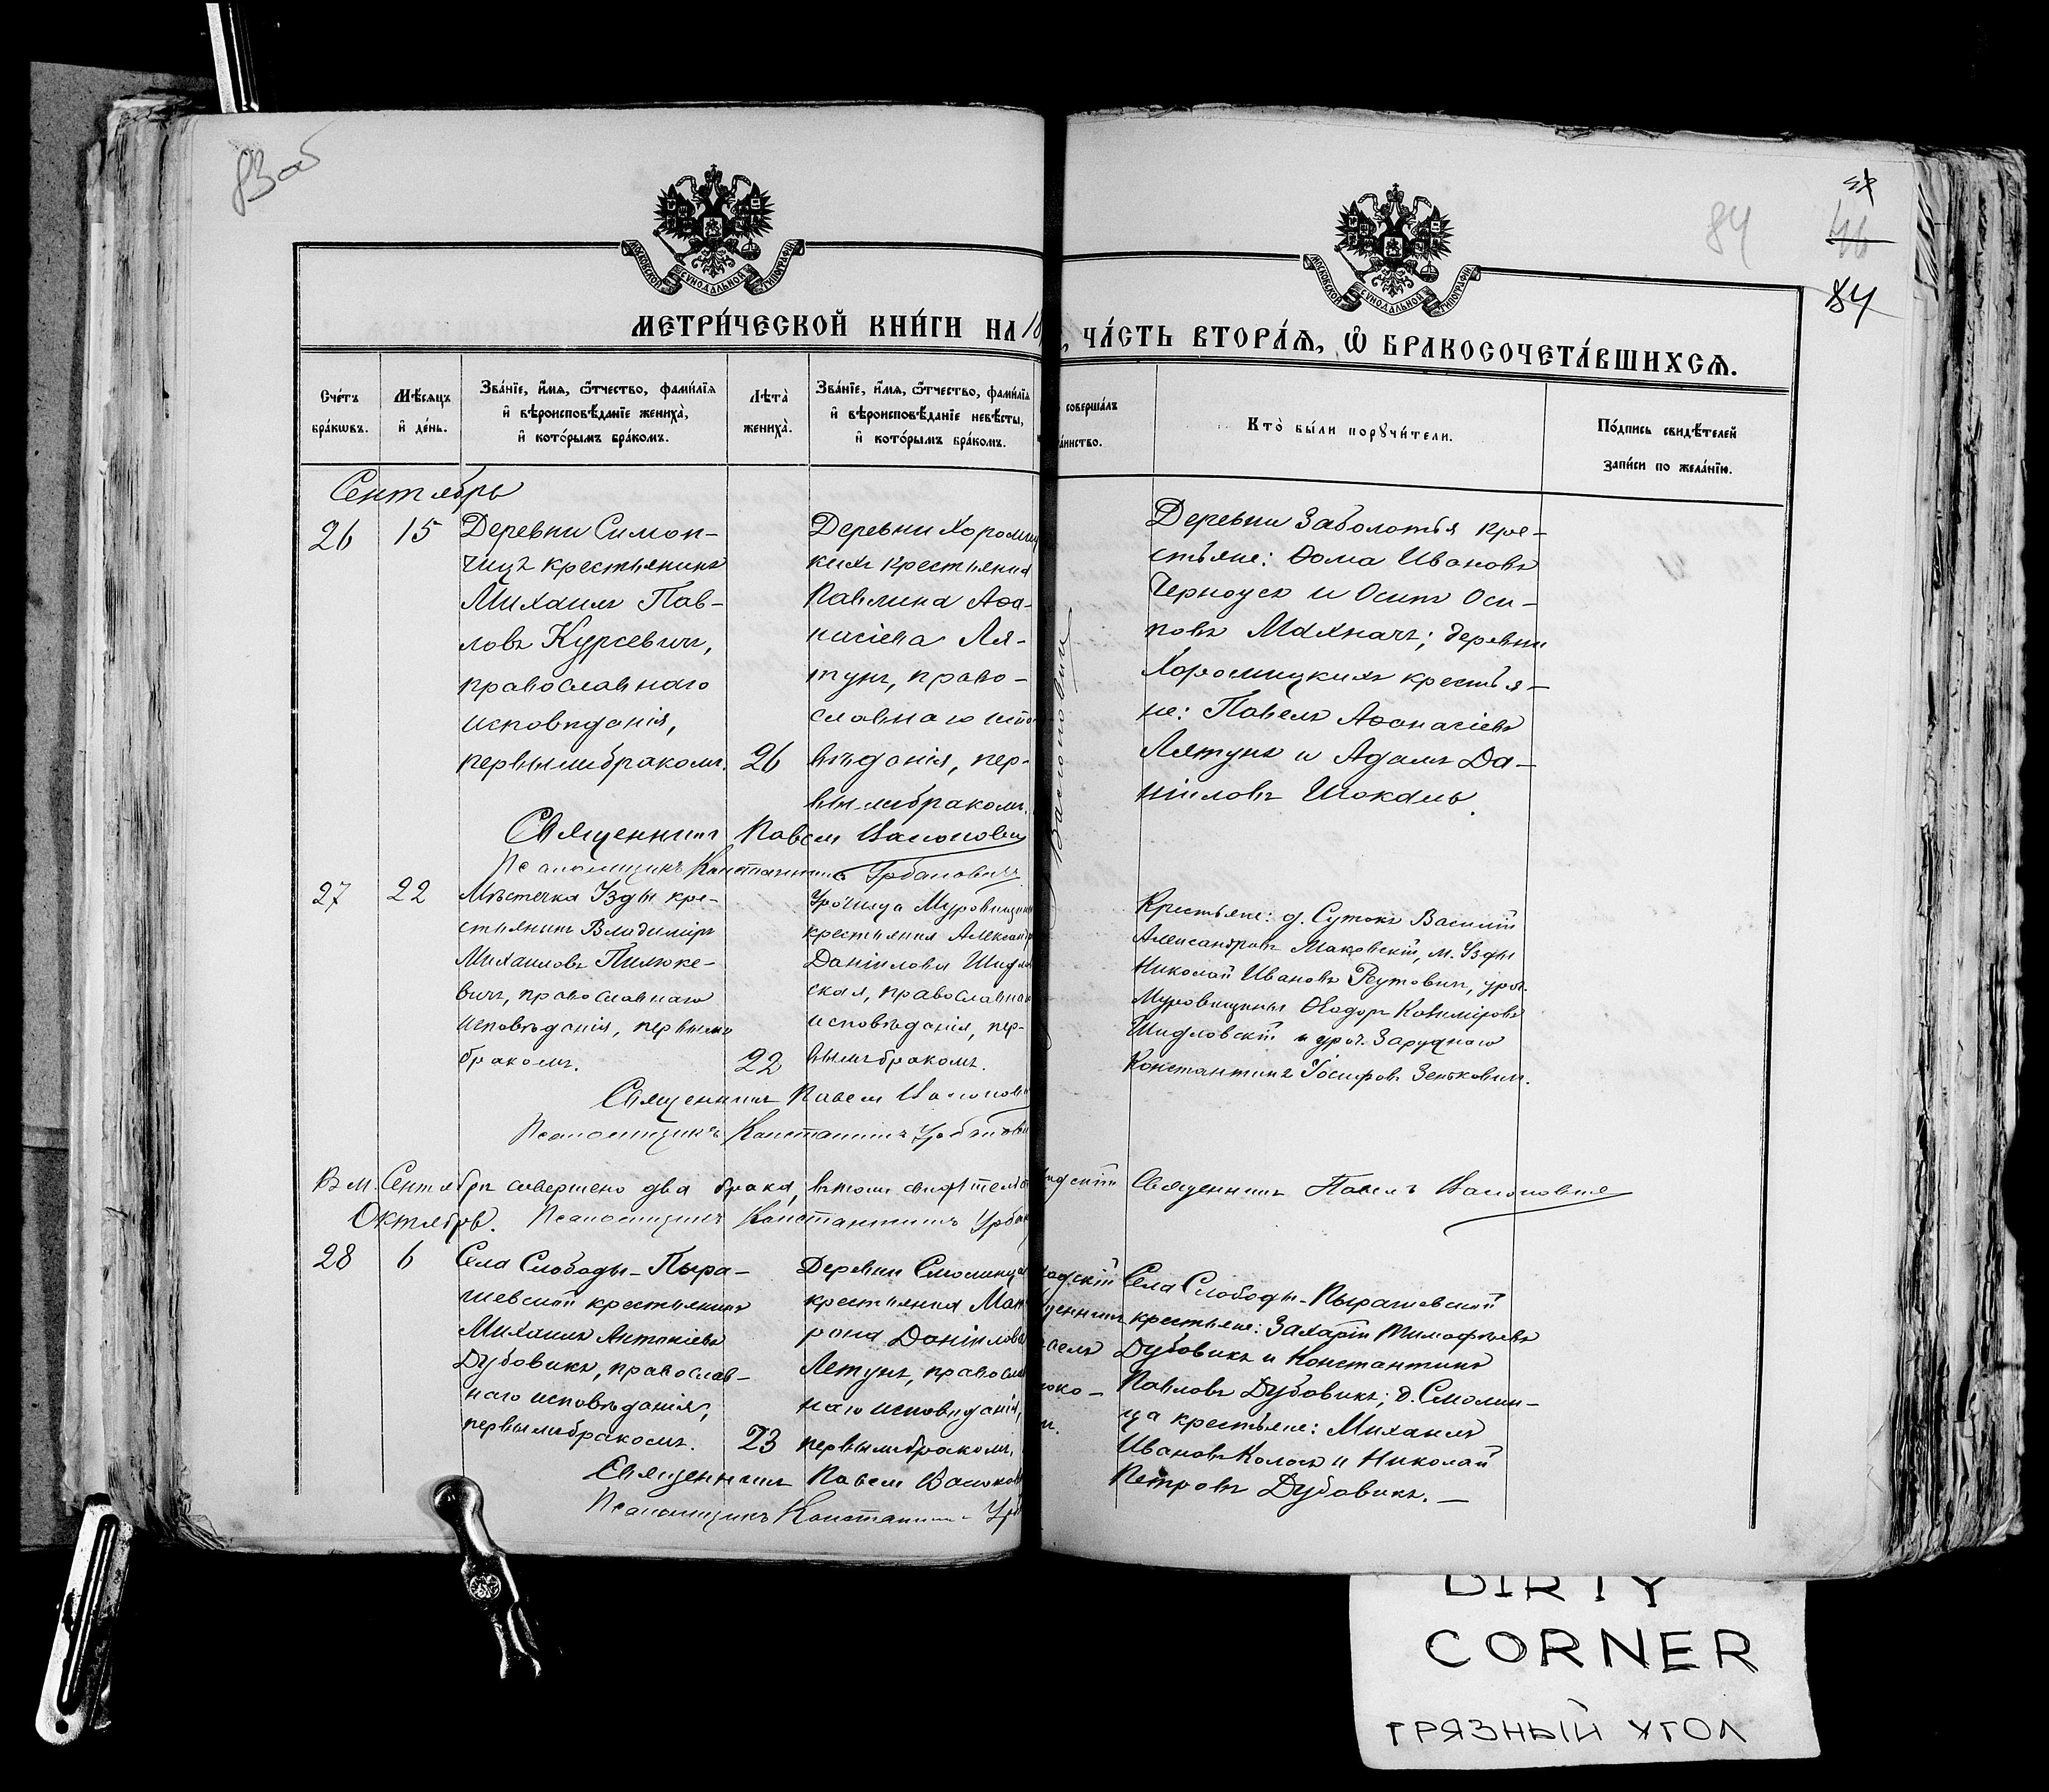 83 об
84
84
МОСКОВСКОЙ СѴНОДАЛЬНОЙ ТИПОГРАФІИ
МОСКОВСКОЙ СѴНОДАЛЬНОЙ ТИПОГРАФІИ
МЕТРИ́ЧЕСКОЙ КНИ́ГИ НА 18
ЧА́СТЬ ВТОРА́Ѧ, Ѽ БРАКОСОЧЕТА́ВШИХСѦ.
Сче́тъ бра́кѡвъ.
Мѣ́сяцъ и҆ де́нь.
Зва́нїе, и҆́мя, ѻ҆́тчество, фами́лїя и҆ вѣроисповѣ́данїе жениха̀, и҆ кото́рымъ бра́комъ.
Лѣта̀ жениха̀.
Зва́нїе, и҆́мя, ѻ҆́тчество, фами́лїя и҆ вѣроисповѣ́данїе невѣ́сты, и҆ кото́рымъ бра́комъ.
соверша́лъ
та́инство.
Кто̀ бы́ли порꙋчи́тели.
По́дпись свидѣ́телей за́писи по жела́нїю.
Сентябрь
26
15
Деревни Симон-
чицъ крестьянинъ
Михаилъ Пав-
ловъ Курсевичъ,
православнаго
исповѣданія,
первымъ бракомъ.
26
Деревни Хоромиц
кихъ крестьянка
Павлина Аѳа-
насіева Ля-
тунъ, право-
славнаго испо
вѣданія, пер-
вымъ бракомъ.
Деревни Заболотья кре-
стьяне: Ѳома Ивановъ
Черноусъ и Осипъ Оси-
повъ Махначъ; деревни
Хоромицкихъ крестья-
не: Павелъ Аѳанасіевъ
Лятунъ и Адамъ Да-
ніиловъ Шокаль.
Священникъ Павелъ
Псаломщикъ Константинъ Урбановичъ
27
22
Мѣстечка Узды кре-
стьянинъ Владиміръ
Михаиловъ Пилюке-
вичъ, православнаго
исповѣданія, первымъ
бракомъ.
22
Урочища Муровщины
крестьянка Александр
Даніилова Шидлов
ская, православна
исповѣданія, пер-
вымъ бракомъ.
Крестьяне: д. Сутокъ Василій
Александровъ Маковскій, м. Узды
Николай Ивановъ Реутовичъ, уроч.
Муровщины Ѳеодоръ Казиміровъ
Шидловскій и уроч. Заруднаго
Константинъ Іосифовъ Зеньковичъ.
Священникъ Павелъ
Псаломщикъ Константинъ Урбанови
Въ м. Сентябрѣ совершено два брака, въ томъ свидѣтельс
Священникъ Павелъ
Октябрь.
Псаломщикъ Константинъ Урбан
28
6
Села Слободы-Пыра-
шевской крестьянинъ
Михаилъ Антоніевъ
Дубовикъ, православ-
наго исповѣданія,
первымъ бракомъ.
23
Деревни Смолинца
крестьянка Мат
рона Даніилова
Летунъ, православ
наго исповѣданія,
первымъ бракомъ,
Села Слободы-Пырашевской
крестьяне: Захарій Тимофѣевъ
Дубовикъ и Константинъ
Павловъ Дубовикъ; д. Смолин-
ца крестьяне: Михаилъ
Ивановъ Колосъ и Николай
Петровъ Дубовикъ. —
Священникъ Павелъ
Псаломщикъ Константинъ Урб
DIRTY
CORNER
ГРЯЗНЫЙ УГОЛ